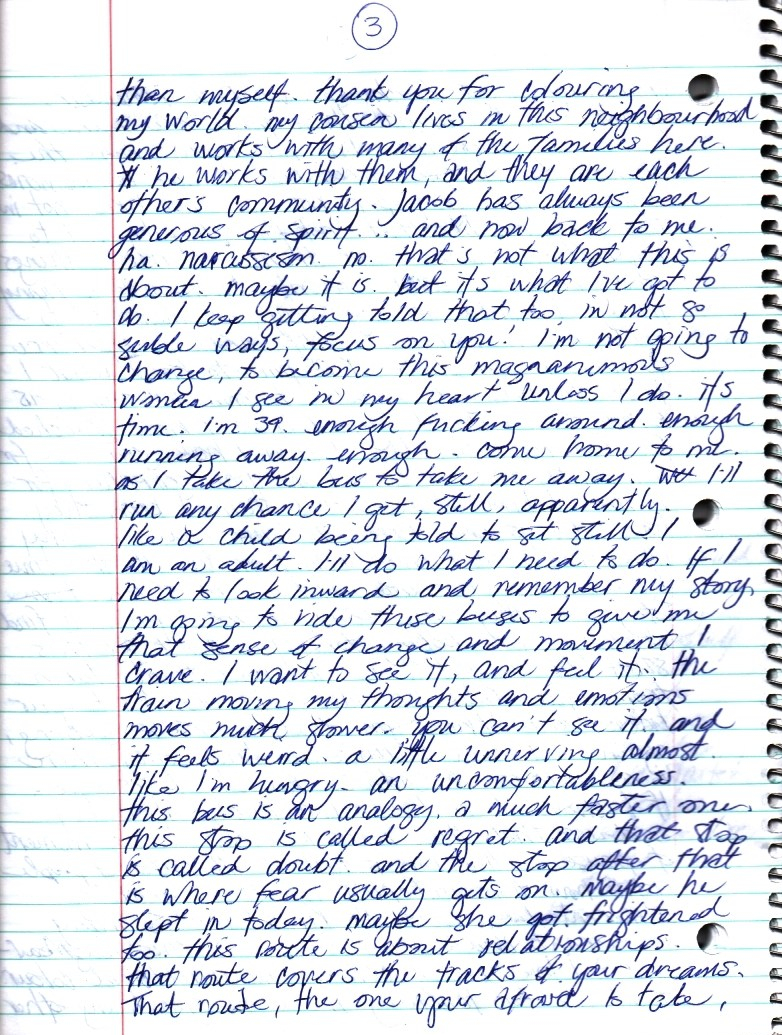 3
than myself. thank you for colouring
my world my cousen lives in this neighbourhood
and works with many of the families here.
he works with them, and they are each
other's community. Jacob has always been
generous of spirit... and now back to me.
ha. narcissism. no. that's not what this is
about. maybe it is. but it's what I've got to
do. I keep getting told that too, in not so
subtle ways, focus on you! I'm not going to
change, to become this magnanimous
woman I see in my heart unless I do. it's
time. i'm 39. enough fucking around. enough
running away. enough. come home to me.
as I take the bus to take me away. I'll
run any chance I get, still, apparently.
like a child being told to sit still. I
am an adult. I'll do what I need to do. If I
need to look inward and remember my story,
I'm going to ride these buses to give me
that sense of change and movement I
crave. I want to see it, and feel it. the
train moving my thoughts and emotions
moves much slower. you can't see it. and
it feels weird. a little unnerving almost.
like I'm hungry. an uncomfortableness.
this bus is an analogy. a much faster one.
this stop is called regret. and that stop
is called doubt. and the stop after that
is where fear usually gets on. maybe he
slept in today. maybe she got frightened
too. this route is about relationships.
that route covers the tracks of your dreams.
That route, the one your afraid to take,